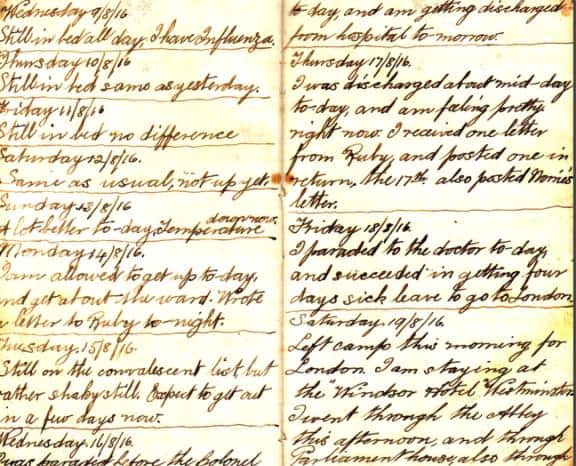 Wednesday 9/8/16
Still in bed all day, I have Influenza.
Thursday 10/8/16
Still in bed same as yesterday.
Friday 11/8/16
Still in bed no difference
Saturday 12/8/16.
Same as usual, not up yet.
Sunday 13/8/16
A lot better to-day, Temperature down now.
Monday 14/8/16.
I am allowed to get up to-day,
and get about the ward. Wrote
a letter to Ruby to-night.
Tuesday. 15/8/16.
Still on the convalescent list but
rather shaky still. Expect to get out
in a few days now.
Wednesday. 16/8/16.
I was paraded before the Colonel
to-day, and am getting discharged
from hospital to-morrow.
Thursday 17/8/16.
I was discharged about mid-day
to-day, and am feling pretty
right now. I received one letter
from Ruby, and posted one in
return, the 17th. also posted Norrie's
letter.
Friday 18/8/16.
I paraded to the doctor to-day,
and succeeded in getting four
days sick leave to go to London
Saturday. 19/8/16.
Left camp this morning for
London. I am staying at
the "Windsor Hotel" Westminster
I went through the Abbey
this afternoon, and through
Parliament house, also through